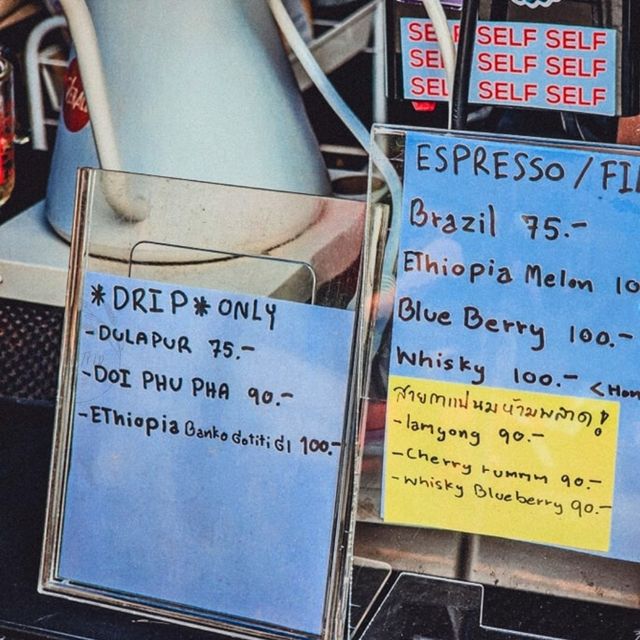 SELF SELF SELF
SELF SELF SELF
SEL SELF SELF
*DRIP* ONLY
-DULAPUR 75.-
-DOI PHU PHA 90.-
-EThiopia Banko dotiti d1 100.-
ESPRESSO / FI
Brazil 75.-
EThiopia Melon 10
Blue Berry 100.-
Whisky 100.- <Hon
สายกาแฟนมห้ามพลาด!
-Iamyong 90.-
-Cherry rummm 90.-
-Whisky Blueberry 90.-